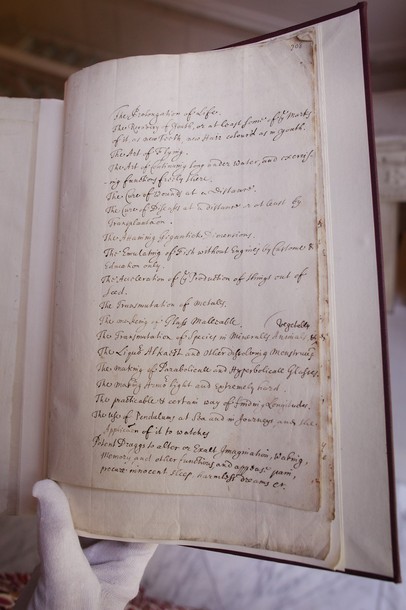 The Prolongation of Life.
The Recovery of Youth, or at least some of ye Marks
of it as new Teeth, new Hair colour'd as in youth.
The Art of Flying.
The Art of Continuing long under Water, and exercis-
ing functions freely there.
The Cure of Wounds at a Distance.
The Cure of Diseases at a distance or at least by
Transplantation.
The Attaining Gigantick Dimensions.
The Emulating of Fish without Engines by Custome &
Education only.
The Acceleration of ye Production of things out of
Seed.
The Transmutation of Metalls.
The makeing of Glass Malleable.
Vegetables
The Transmutation of Species in Mineralls, Animals &
The Liquid Alkaest and other dissolving Menstruums
The making of Parabolicall and Hyperbolicall Glasses.
The making Armor light and extremely hard.
The practicable & certain way of finding Longitudes.
The use of Pendulums at Sea and in Journeys, and the
Application of it to watches
Potent Druggs to alter or Exalt Imagination, Waking,
Memory and other functions, and appease pain,
procure innocent sleep, harmless dreams &c.